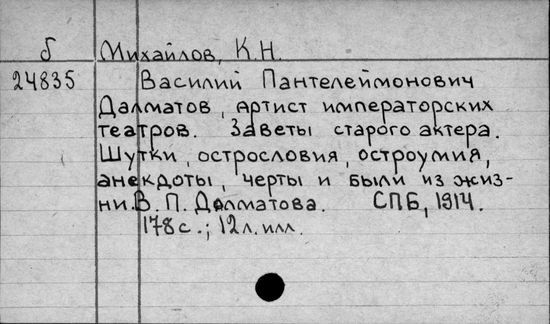 б Михайлов, К.Н.
24835 Василий Пантелеймонович
Далматов, артист императорских
театров. Заветы старого актера.
Шутки, острословия, остроумия,
анекдоты, черты и были из жиз-
ни В. П. Далматова. СПБ, 1914.
178 с.; 12 л. илл.